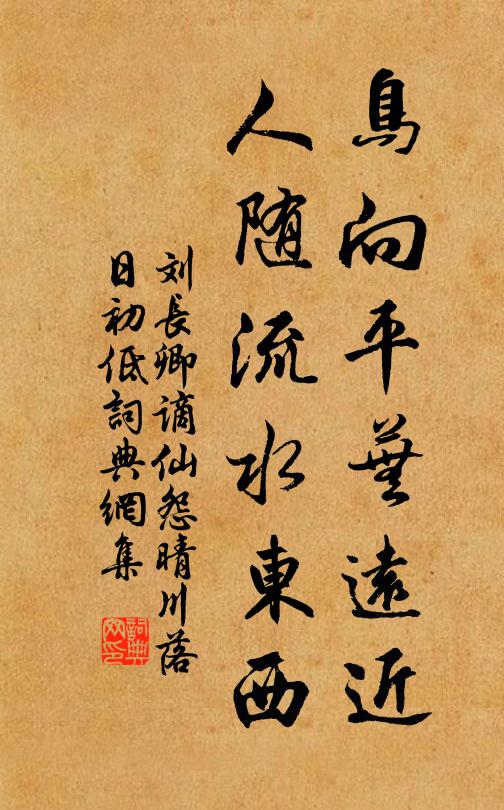 鳥向平蕪遠近
人随流水東西
刘長卿謫仙怨晴川落
日初低詞典網集
詞典網印